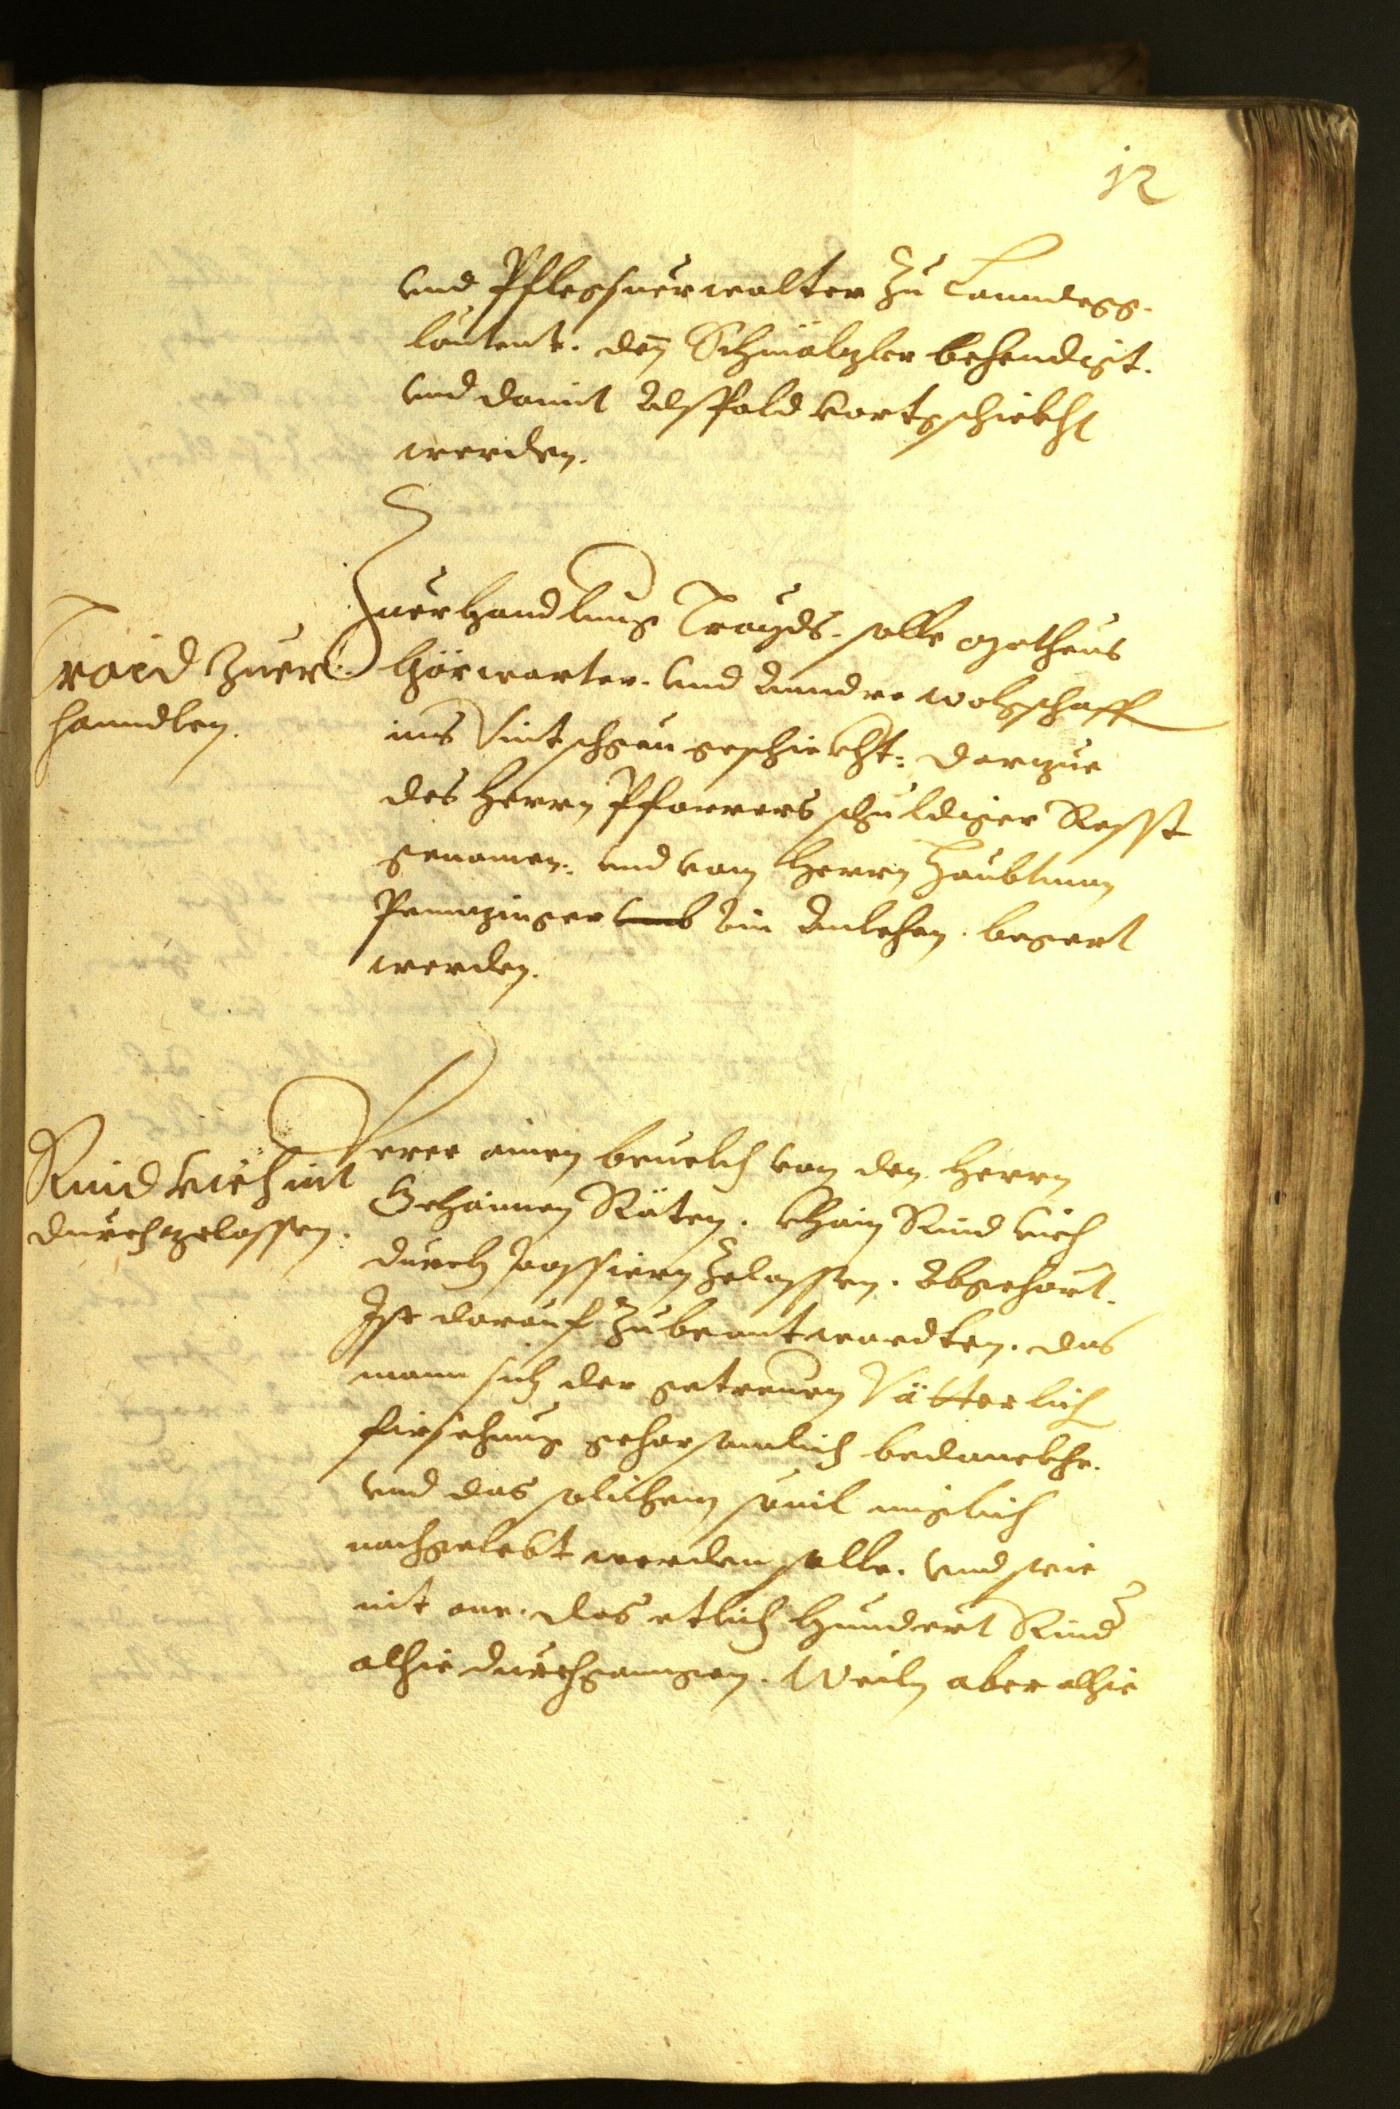 12
vnd Pflegsuerwalter zu Lanndegg.
lautent. den Schmälzler behendigt.
vnd damit Alspald vortgschickht
werden.
Traid zuer
hanndlen.
Zuerhandlung Trayds. solle Matheus
Hörwarter. vnd Anndre Wolgschaff
ins Vintschgeu geschickht: darzue
des Herrn Pfarrers schuldiger Rest
genomen: vnd vom Herrn Haubtman
Pennzinger vmb ain Anlehen. begert
werden.
Rind viech nit
durchzelassen.
Verer ainen beuelch von den Herrn
Gehaimen Räten. khain Rind viech
durch passiern zelassen. Abgehört.
Ist darauf zubeantwordten. das
mann sich der getreuen Vätterlich
fürsehung gehorsamlich bedanckhe.
vnd das solichem souil miglich
nachgelebt werden solle. vnd seie
nit one. das etlich Hundert Rind
alhie durchgangen. Weiln aber alhie